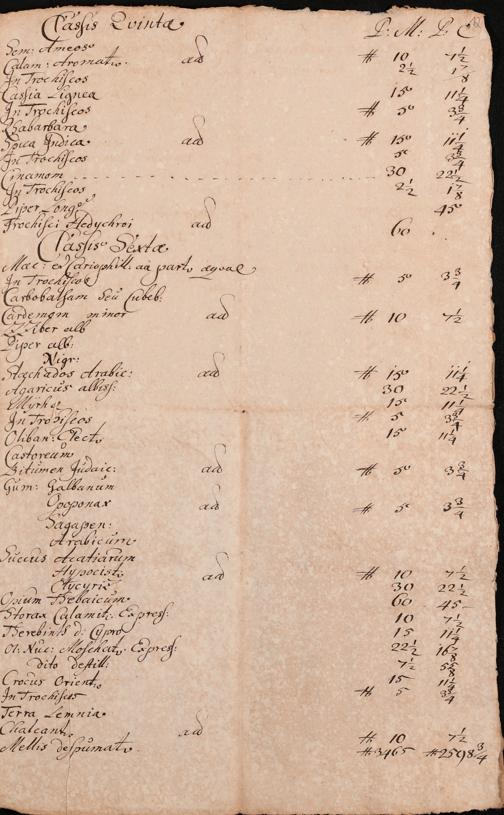 Classis Quinta P: M: P: C
Sem: Ameos
Calam: Aromatic: ad # 10 7½
In Trochiscos 2½ 1⅞
Cassia Lignea 15 11¼
In Trochiscos # 5 3¾
Rhabarbara
Spica Indica ad # 15 11¼
In Trochiscos 5 3¾
Cinamom 30 22½
In Trochiscos 2½ 1⅞
Piper Long: 45
Trochisci Hedychroi ad 60 .
Classis Sexta
Mac: et Cariophill: aa parts aequal
In Trochiscos # 5 3¾
Carbobalsam seu Cubeb:
Cardemom minor ad # 10 7½
Ziber alb
Piper alb:
Nigr:
Stachados Arabic: ad # 15 11¼
Agaricus albiss: 30 22½
Myrha 15 11¼
In Trochiscos # 5 3¾
Oliban: Elect: 15 11¼
Castoreum
Bitumen Judaic: ad # 5 3¾
Gum: Galbanum
Opoponax ad # 5 3¾
Sagapen:
Arabicum
Succus Acatiarum
Hypocist: ad # 10 7½
Glycyrie 30 22½
Opium Thebaicum 60 45-
Storax Calamit: Express: 10 7½
Therebinth d: Cypro 15 11¼
Ol: Nuc: Moschat: Express: 22½ 16⅞
dito destill: 7½ 5⅝
Crocus Orient: 15 11¼
In Trochiscos # 5 3¾
Terra Lemnia
Chalcant: ad # 10 7½
Mellis despumat: #3465 #2598¾